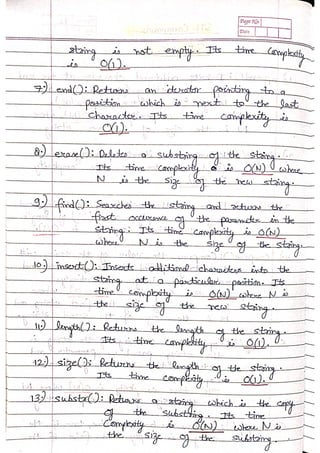 Page No.
Date
string is not empty. Its time complexity
is O(1).
7.) end(): Returns an iterator pointing to a
position which is next to the last
character. Its time complexity is
O(1).
8.) erase(): Deletes a substring of the string.
Its time complexity is O(N) where
N is the size of the new string.
9.) find(): Searches the string and returns the
first occurence of the parameter in the
string. Its time complexity is O(N)
where N is the size of the string.
10.) insert(): Inserts additional characters into the
string at a particular position. Its
time complexity is O(N) where N is
the size of the new string.
11) length(): Returns the length of the string.
Its time complexity is O(1).
12.) size(): Returns the length of the string.
Its time complexity is O(1).
13.) substr(): Returns a string which is the copy
of the substring. Its time
complexity is O(N) where N is
the size of the substring.